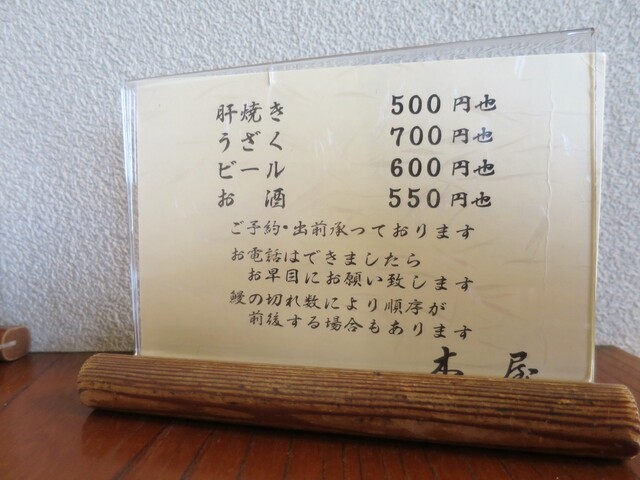 肝焼き 500円也
うざく 700円也
ビール 600円也
お酒 550円也
ご予約・出前承っております
お電話はできましたら
お早目にお願い致します
鰻の切れ数により順序が
前後する場合もあります
本屋